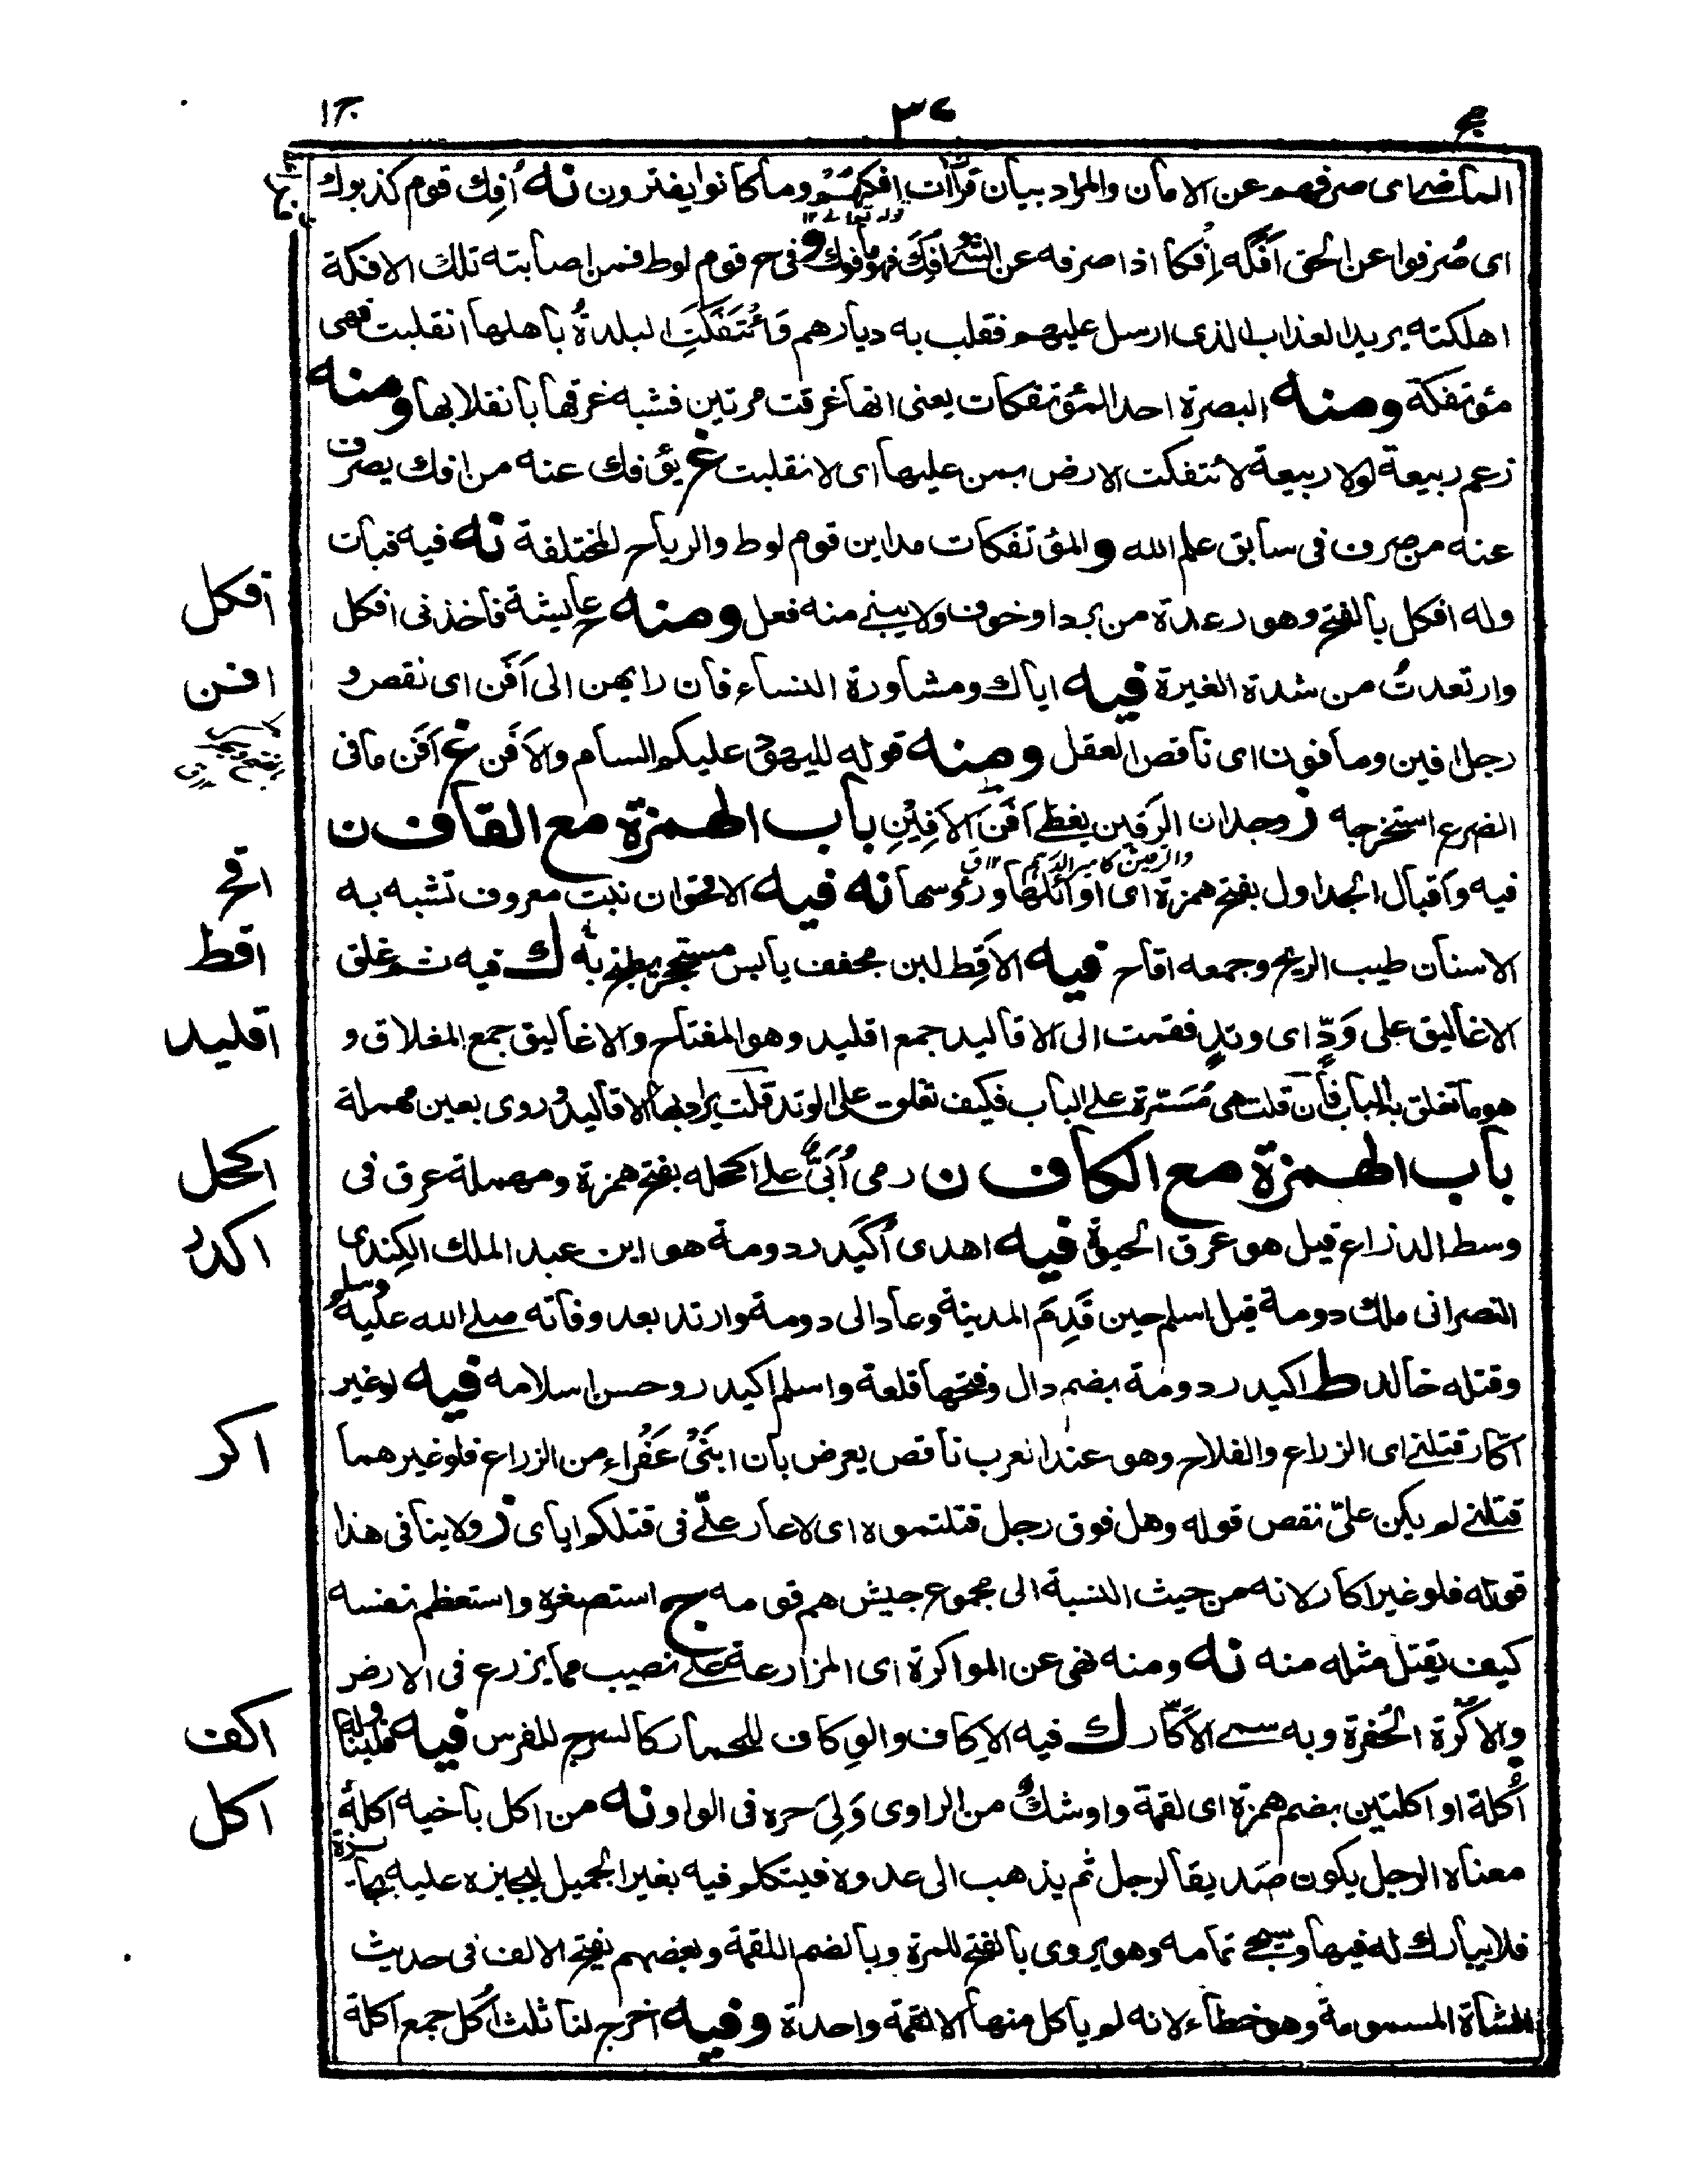 ج ١
٣٧
الماضى اى صرفهم عن الامان والمراد بيان قراآت افكهم وما كانوا يفترون نه أفِك قوم كذبوك
قوله تعالے ١٢
اى صُرفوا عن الحق اَفَكَه اِفكا اذا صرفه عن الشئ اُفِكَ فهو مأفوك و فى ح قوم لوط فمن اصابته تلك الافكة
اهلكته يريد العذاب الذى ارسل عليهم فقلب به ديارهم وَائْتَفَكَتِ البلدةُ باهلها انقلبت فهى
مؤتفكة ومنه البصرة احد المؤتفكات يعنى انها غرقت مرتين فشبه غرقها بانقلابها ومنه
زعم ربيعة لولا ربيعة لائتفكت الارض بمن عليها اى لانقلبت غ يؤفك عنه من افك يصرف
عنه من صرف فى سابق علم الله والمؤتفكات مداين قوم لوط والرياح المختلفة نه فيه فبات
وله افكل بالفتح وهو رعدة من برد او خوف ولا يبنى منه فعل ومنه ح عايشة فاخذنى افكل
وارتعدتُ من شدة الغيرة فيه اياك ومشاورة النساء فان رايهن الى اَفَن اى نقص و
رجل افين ومافون اى ناقص العقل ومنه قوله لليهود عليكم السام والاَفَن غ اَفَن ما فى
الضرع استخرجه ز وجدان الرَقين يغطى اَفَنَ الاَفِيْنِ باب الهمزة مع القاف ن
والرقين كامير الدرهم ١٢ ق
فيه واقبال الجداول بفتح همزة اى اوائلها ورؤسها نه فيه الاقحوان نبت معروف تشبه به
الاسنان طيب الريح وجمعه اقاح فيه الاَقِط لبن مجفف يابس مستحجر يطبخ به ك فيه ثم غلق
الاغاليق على وَدّ اى وتد فقمت الى الاقاليد جمع اقليد وهو المفتاح والاغاليق جمع المغلاق و
هو ما تغلق به الباب فان قلت هى مُسَمَّرة على الباب فكيف تغلق على الوتد قلت يراد بها الاقاليد وروى بعين مهملة
باب الهمزة مع الكاف ن رمى اُبَىّ على اكحله بفتح همزة ومهملة عرق فى
وسط الذراع قيل هو عرق الحيوة فيه اهدى اُكَيدر دومة هو ابن عبد الملك الكِندى
النصرانى ملك دومة قيل اسلم حين قَدِمَ المدينة وعاد الى دومة وارتد بعد وفاته صلى الله عليه وسلم
وقتله خالد ط اكيدر دومة بضم دال وفتحها قلعة واسلم اكيدر وحسن اسلامه فيه لو غير
اكّار قتلنى اى الزراع والفلاح وهو عند العرب ناقص يعرض بان ابنَىْ عَفْراء من الزراع فلو غيرهما
قتلنى لم يكن علىّ نقص قوله وهل فوق رجل قتلتموه اى لا عار علىّ فى قتلكم اياى ز ولا ينافى هذا
قوله فلو غير اكار لانه من حيث النسبة الى مجموع جيش هم قومه ج استصغره واستعظم نفسه
كيف يقتل مثله منه نه ومنه نهى عن المواكرة اى المزارعة على نصيب مما يزرع فى الارض
والاُكْرة الحُفرة وبه سمى الاَكّار ك فيه الاِكاف والوِكاف للحمار كالسرج للفرس فيه فليناوله
اُكلة او اكلتين بضم همزة اى لقمة واو شكٌ من الراوى وَلِىَ حره فى الواو نه من اكل باخيه اكلةً
معناه الرجل يكون صَديقا لرجل ثم يذهب الى عدوه فيتكلم فيه بغير الجميل ليجيزه عليه بجائزة
فلا يبارك له فيها وسيجئ تمامه وهو يروى بالفتح للمرة وبالضم اللقمة وبعضهم يفتح الالف فى حديث
الشاة المسمومة وهو خطاء لانه لم ياكل منها الا لقمة واحدة وفيه اخرج لنا ثلث اُكل جمع اكلة
افكل
افن
اقح
اقط
اقليد
اكحل
اكدر
اكر
اكف
اكل